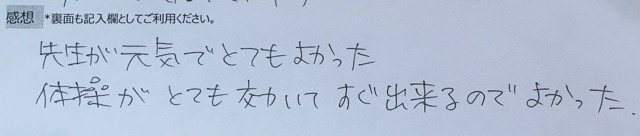 感想 *裏面も記入欄としてご利用ください。
先生が元気でとてもよかった
体操がとても効いてすぐ出来るのでよかった.